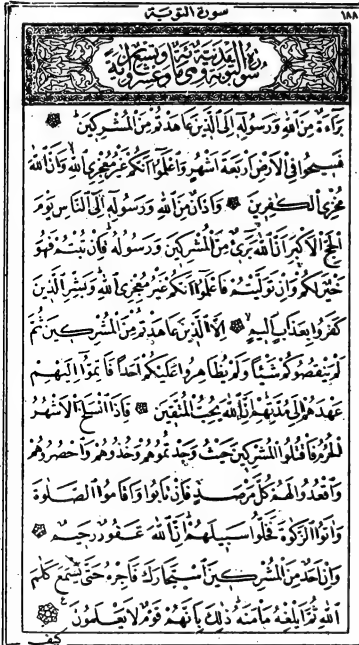 سورة التوبة ١٨٨
بَرَاءَةٌ مِنَ اللهِ وَرَسُولِهِ إِلَى الَّذِينَ عَاهَدْتُمْ مِنَ الْمُشْرِكِينَ
فَسِيحُوا فِي الْأَرْضِ أَرْبَعَةَ أَشْهُرٍ وَاعْلَمُوا أَنَّكُمْ غَيْرُ مُعْجِزِي اللهِ وَأَنَّ اللهَ
مُخْزِي الْكَافِرِينَ وَأَذَانٌ مِنَ اللهِ وَرَسُولِهِ إِلَى النَّاسِ يَوْمَ
الْحَجِّ الْأَكْبَرِ أَنَّ اللهَ بَرِيءٌ مِنَ الْمُشْرِكِينَ وَرَسُولُهُ فَإِنْ تُبْتُمْ فَهُوَ
خَيْرٌ لَكُمْ وَإِنْ تَوَلَّيْتُمْ فَاعْلَمُوا أَنَّكُمْ غَيْرُ مُعْجِزِي اللهِ وَبَشِّرِ الَّذِينَ
كَفَرُوا بِعَذَابٍ أَلِيمٍ إِلَّا الَّذِينَ عَاهَدْتُمْ مِنَ الْمُشْرِكِينَ ثُمَّ
لَمْ يَنْقُصُوكُمْ شَيْئًا وَلَمْ يُظَاهِرُوا عَلَيْكُمْ أَحَدًا فَأَتِمُّوا إِلَيْهِمْ
عَهْدَهُمْ إِلَى مُدَّتِهِمْ إِنَّ اللهَ يُحِبُّ الْمُتَّقِينَ فَإِذَا انْسَلَخَ الْأَشْهُرُ
الْحُرُمُ فَاقْتُلُوا الْمُشْرِكِينَ حَيْثُ وَجَدْتُمُوهُمْ وَخُذُوهُمْ وَاحْصُرُوهُمْ
وَاقْعُدُوا لَهُمْ كُلَّ مَرْصَدٍ فَإِنْ تَابُوا وَأَقَامُوا الصَّلٰوةَ
وَآتَوُا الزَّكٰوةَ فَخَلُّوا سَبِيلَهُمْ إِنَّ اللهَ غَفُورٌ رَحِيمٌ
وَإِنْ أَحَدٌ مِنَ الْمُشْرِكِينَ اسْتَجَارَكَ فَأَجِرْهُ حَتَّى يَسْمَعَ كَلَامَ
اللهِ ثُمَّ أَبْلِغْهُ مَأْمَنَهُ ذٰلِكَ بِأَنَّهُمْ قَوْمٌ لَا يَعْلَمُونَ
كيف